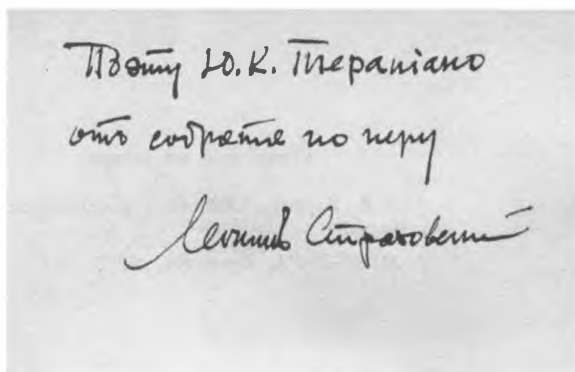 Поэту Ю.К. Терапіано
отъ собрата по перу
Леонидъ Страховскій